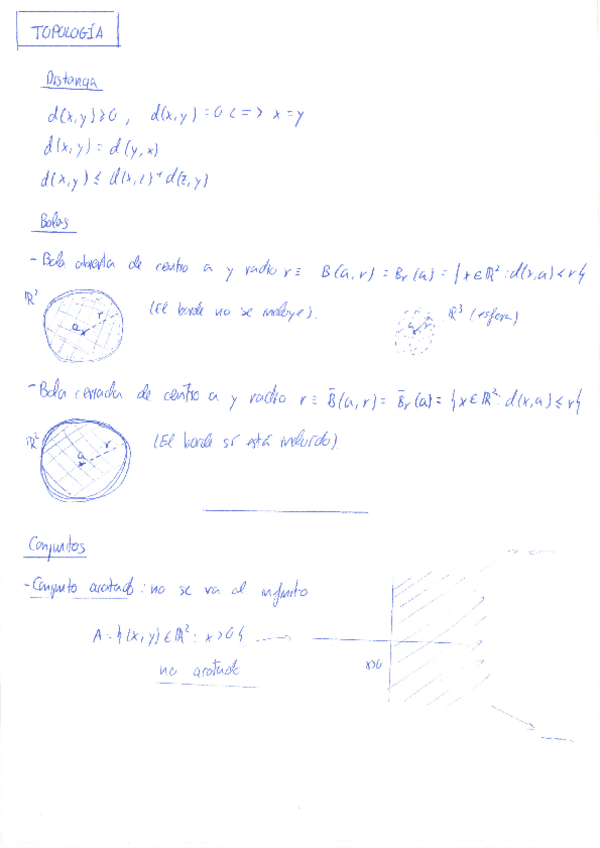 TOPOLOGÍA
Distancia
d(x,y)≥0, d(x,y)=0 <=> x=y
d(x,y) = d(y,x)
d(x,y) ≤ d(x,z)+d(z,y)
Bolas
- Bola abierta de centro a y radio r ≡ B(a,r) = Br(a) = {x∈ℝ²: d(x,a)<r}
ℝ² a r (El borde no se incluye). a r ℝ³ (esfera)
- Bola cerrada de centro a y radio r ≡ B̄(a,r) = B̄r(a) = {x∈ℝ²: d(x,a)≤r}
ℝ² a r (El borde sí está incluido)
Conjuntos
- Conjunto acotado: no se va al infinito
A = {(x,y)∈ℝ²: x>0}
x>0
no acotado